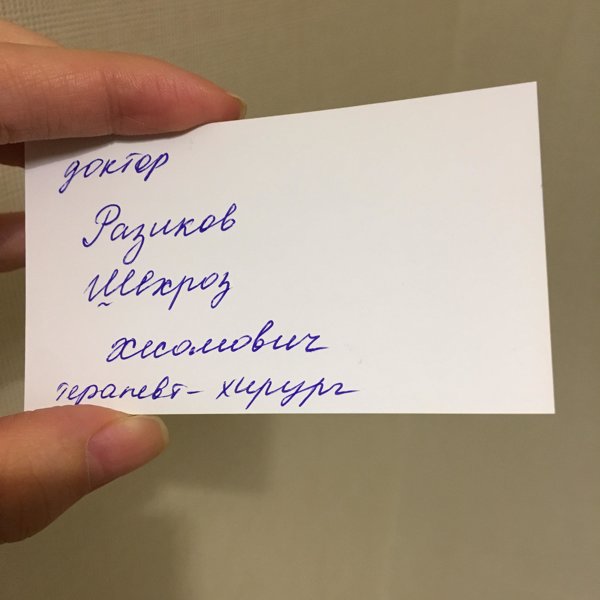 доктор
Разиков
Шехроз
Хесомович
терапевт - хирург